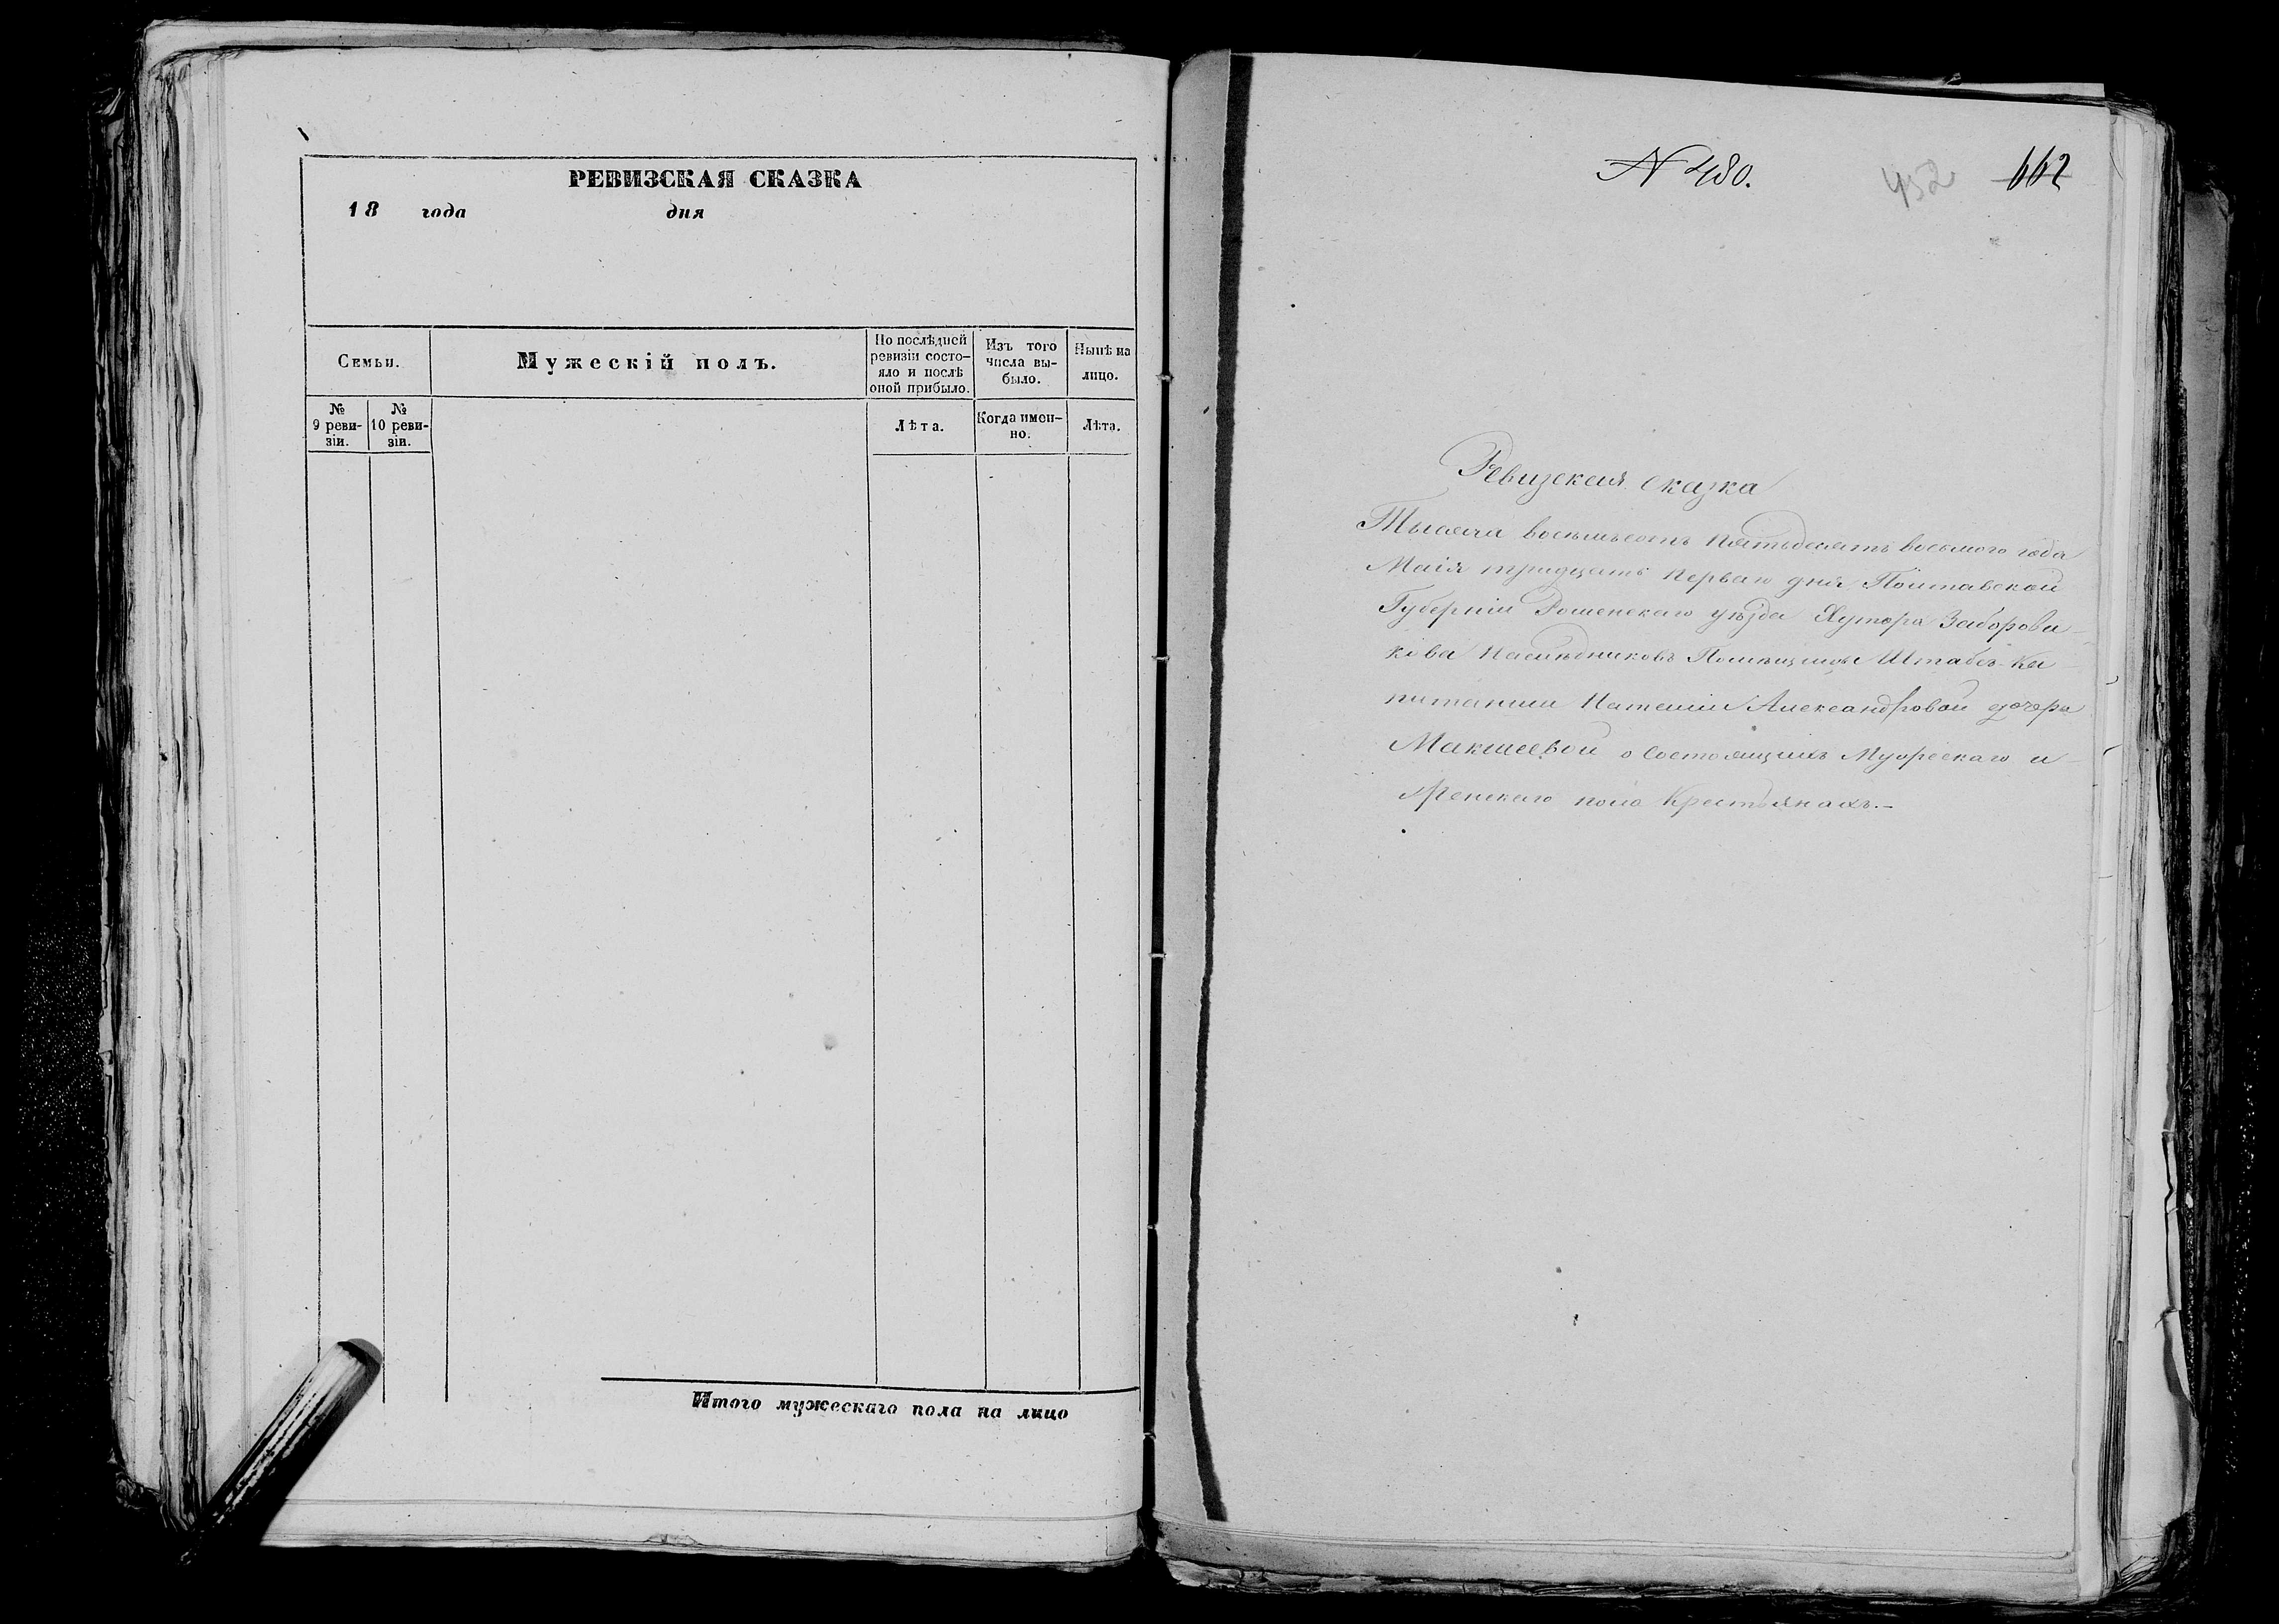 РЕВИЗСКАЯ СКАЗКА
18 года дня
Семьи.
Мужескій полъ.
По послѣдней
ревизіи состо-
яло и послѣ
оной прибыло.
Изъ того
числа вы-
было.
Нынѣ на
лицо.
№
9 реви-
зіи.
№
10 реви-
зіи.
Лѣта.
Когда имен-
но.
Лѣта.
Итого мужескаго пола на лицо
N 480.
452
662
Ревизская сказка
Тысяча восемьсотъ пятьдесятъ восьмого года
Маія тридцать перваго дня Полтавской
Губерніи Роменскаго уѣзда Хутора Заборови-
кова Наслѣдниковъ Помѣщицы Штабсъ-Ка-
питанши Наталіи Александровой дочери
Макшеевой о состоящихъ Мужескаго и
Женскаго пола Крестьянахъ.-